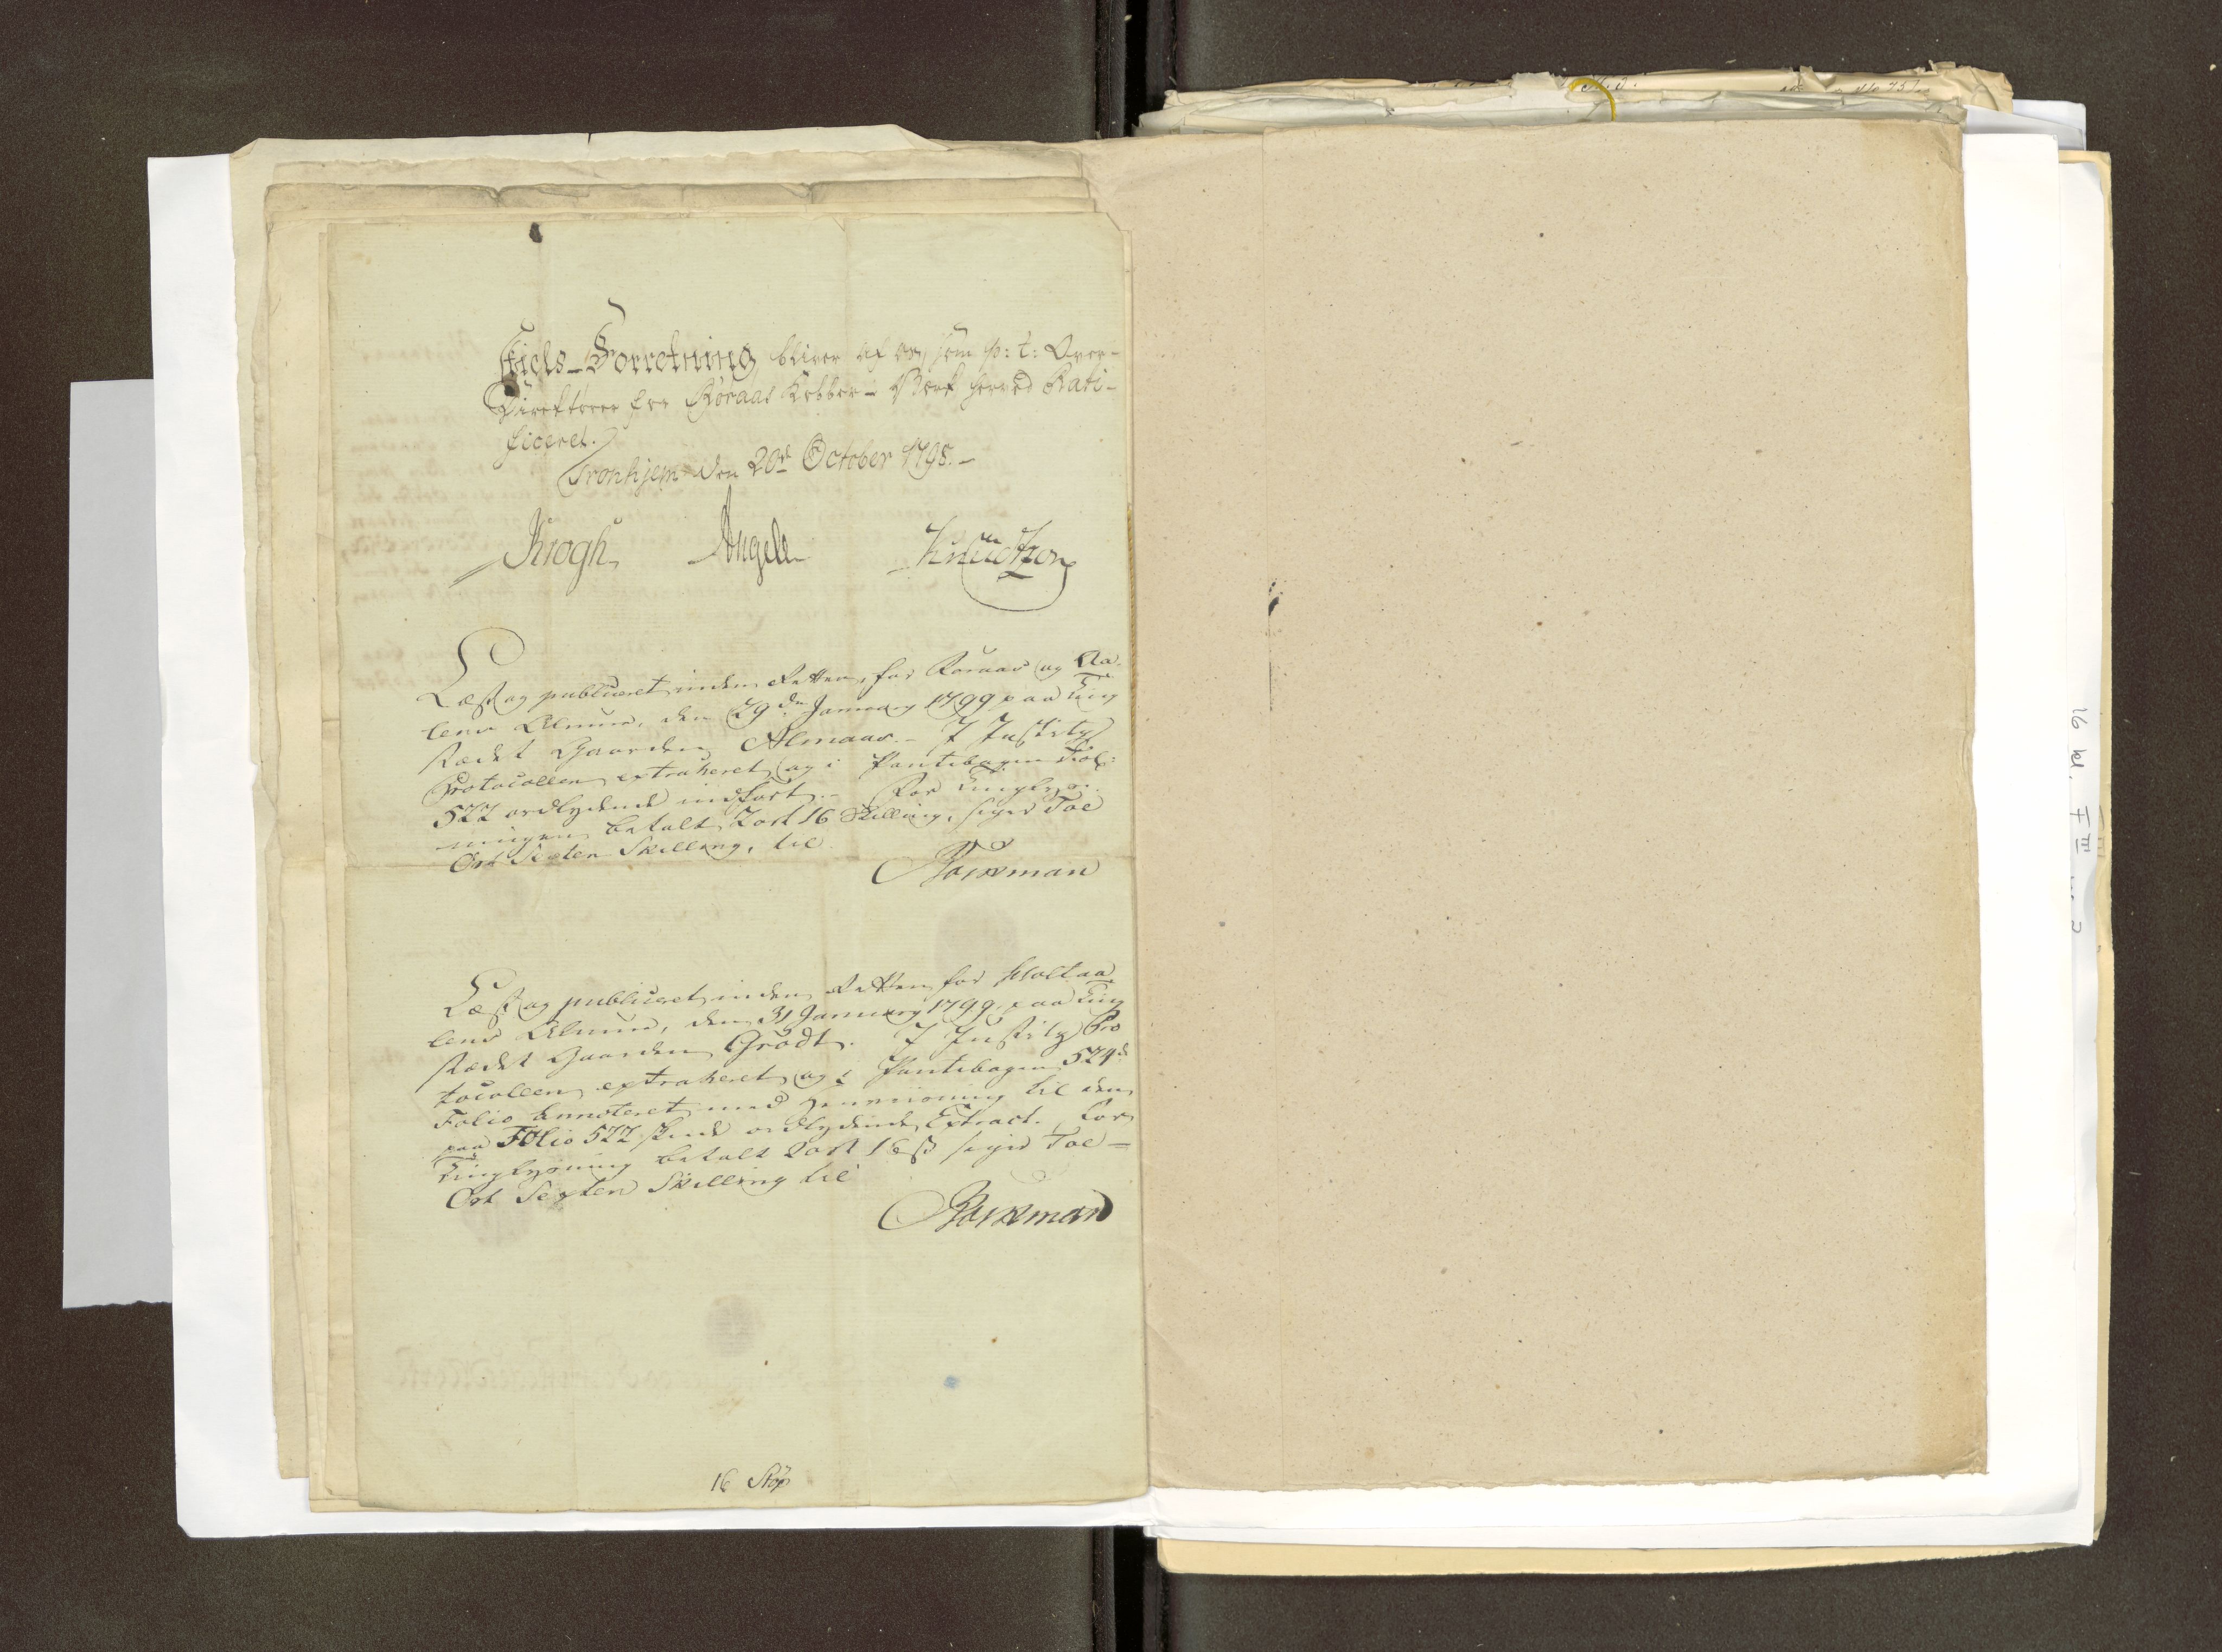 Skiels-Forretning bliver af os, som p: t: Over-
Direkteurer for Røraas Kobber-Værk herved Rati-
ficeret.
Tronhjem den 20de October 1798.-
Krogh Angell Knudtzon
Læst og publiceret inden Retten for Røraas og Aa-
lens Almue, den 29de January 1799 paa Ting
stædet Gaarden Almaas.- I Justitz
Protocollen extraheret og i Pantebogen Fol:
522 ordlydende indført.- For Tinglys-
ningen betalt 2 ort 16 Skilling, siger Toe
Ort Sexten Skilling, til
Borkman
Læst og publiceret inden Retten for Holtaa
lens Almue, den 31 January 1799, paa Ting
stædet Gaarden Grødt. I Justitz Pro
tocollen extraheret og i Pantebogen 524de
Folio Annoteret med Henviisning til den
paa Folio 522 ordlydende Extract. For
Tinglysning betalt 2 ort 16 ß siger Toe-
Ort Sexten Skilling til
Borkman
16